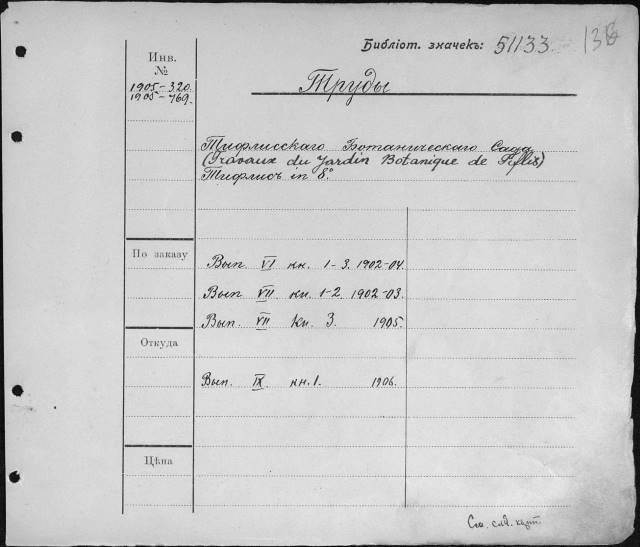 Библіот. значекъ: 51133
Инв.
№
1905-320.
1905-769.
Труды
Тифлисскаго Ботаническаго Сада
(Travaux du Jardin Botanique de Tiflis)
Тифлисъ in 8°.
По заказу
Вып. VI кн. 1-3. 1902-04.
Вып. VII кн. 1-2. 1902-03.
Вып. VII Кн. 3. 1905.
Откуда
Вып. IX кн. 1. 1906.
Цѣна
См. слѣд.